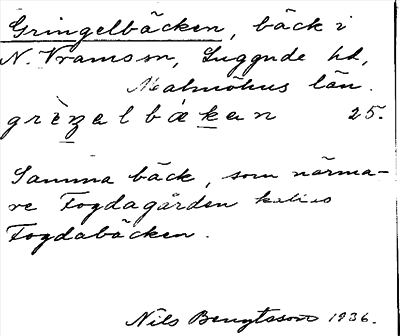 Gringelbäcken, bäck i
N. Vrams sn, Luggude hd,
Malmöhus län.
grèzalbákan 25.
Samma bäck, som närma-
re Fogdagården kallas
Fogdabäcken.
Nils Bengtsson 1936.